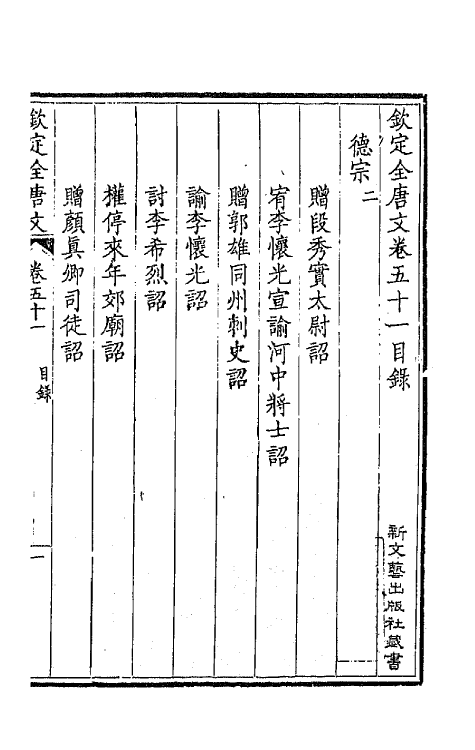 欽定全唐文卷五十一目錄
新文藝出版社藏書
德宗二
贈段秀實太尉詔
宥李懷光宣諭河中將士詔
贈郭雄同州刺史詔
諭李懷光詔
討李希烈詔
權停來年郊廟詔
贈顏眞卿司徒詔
欽定全唐文
卷五十一
目錄
一